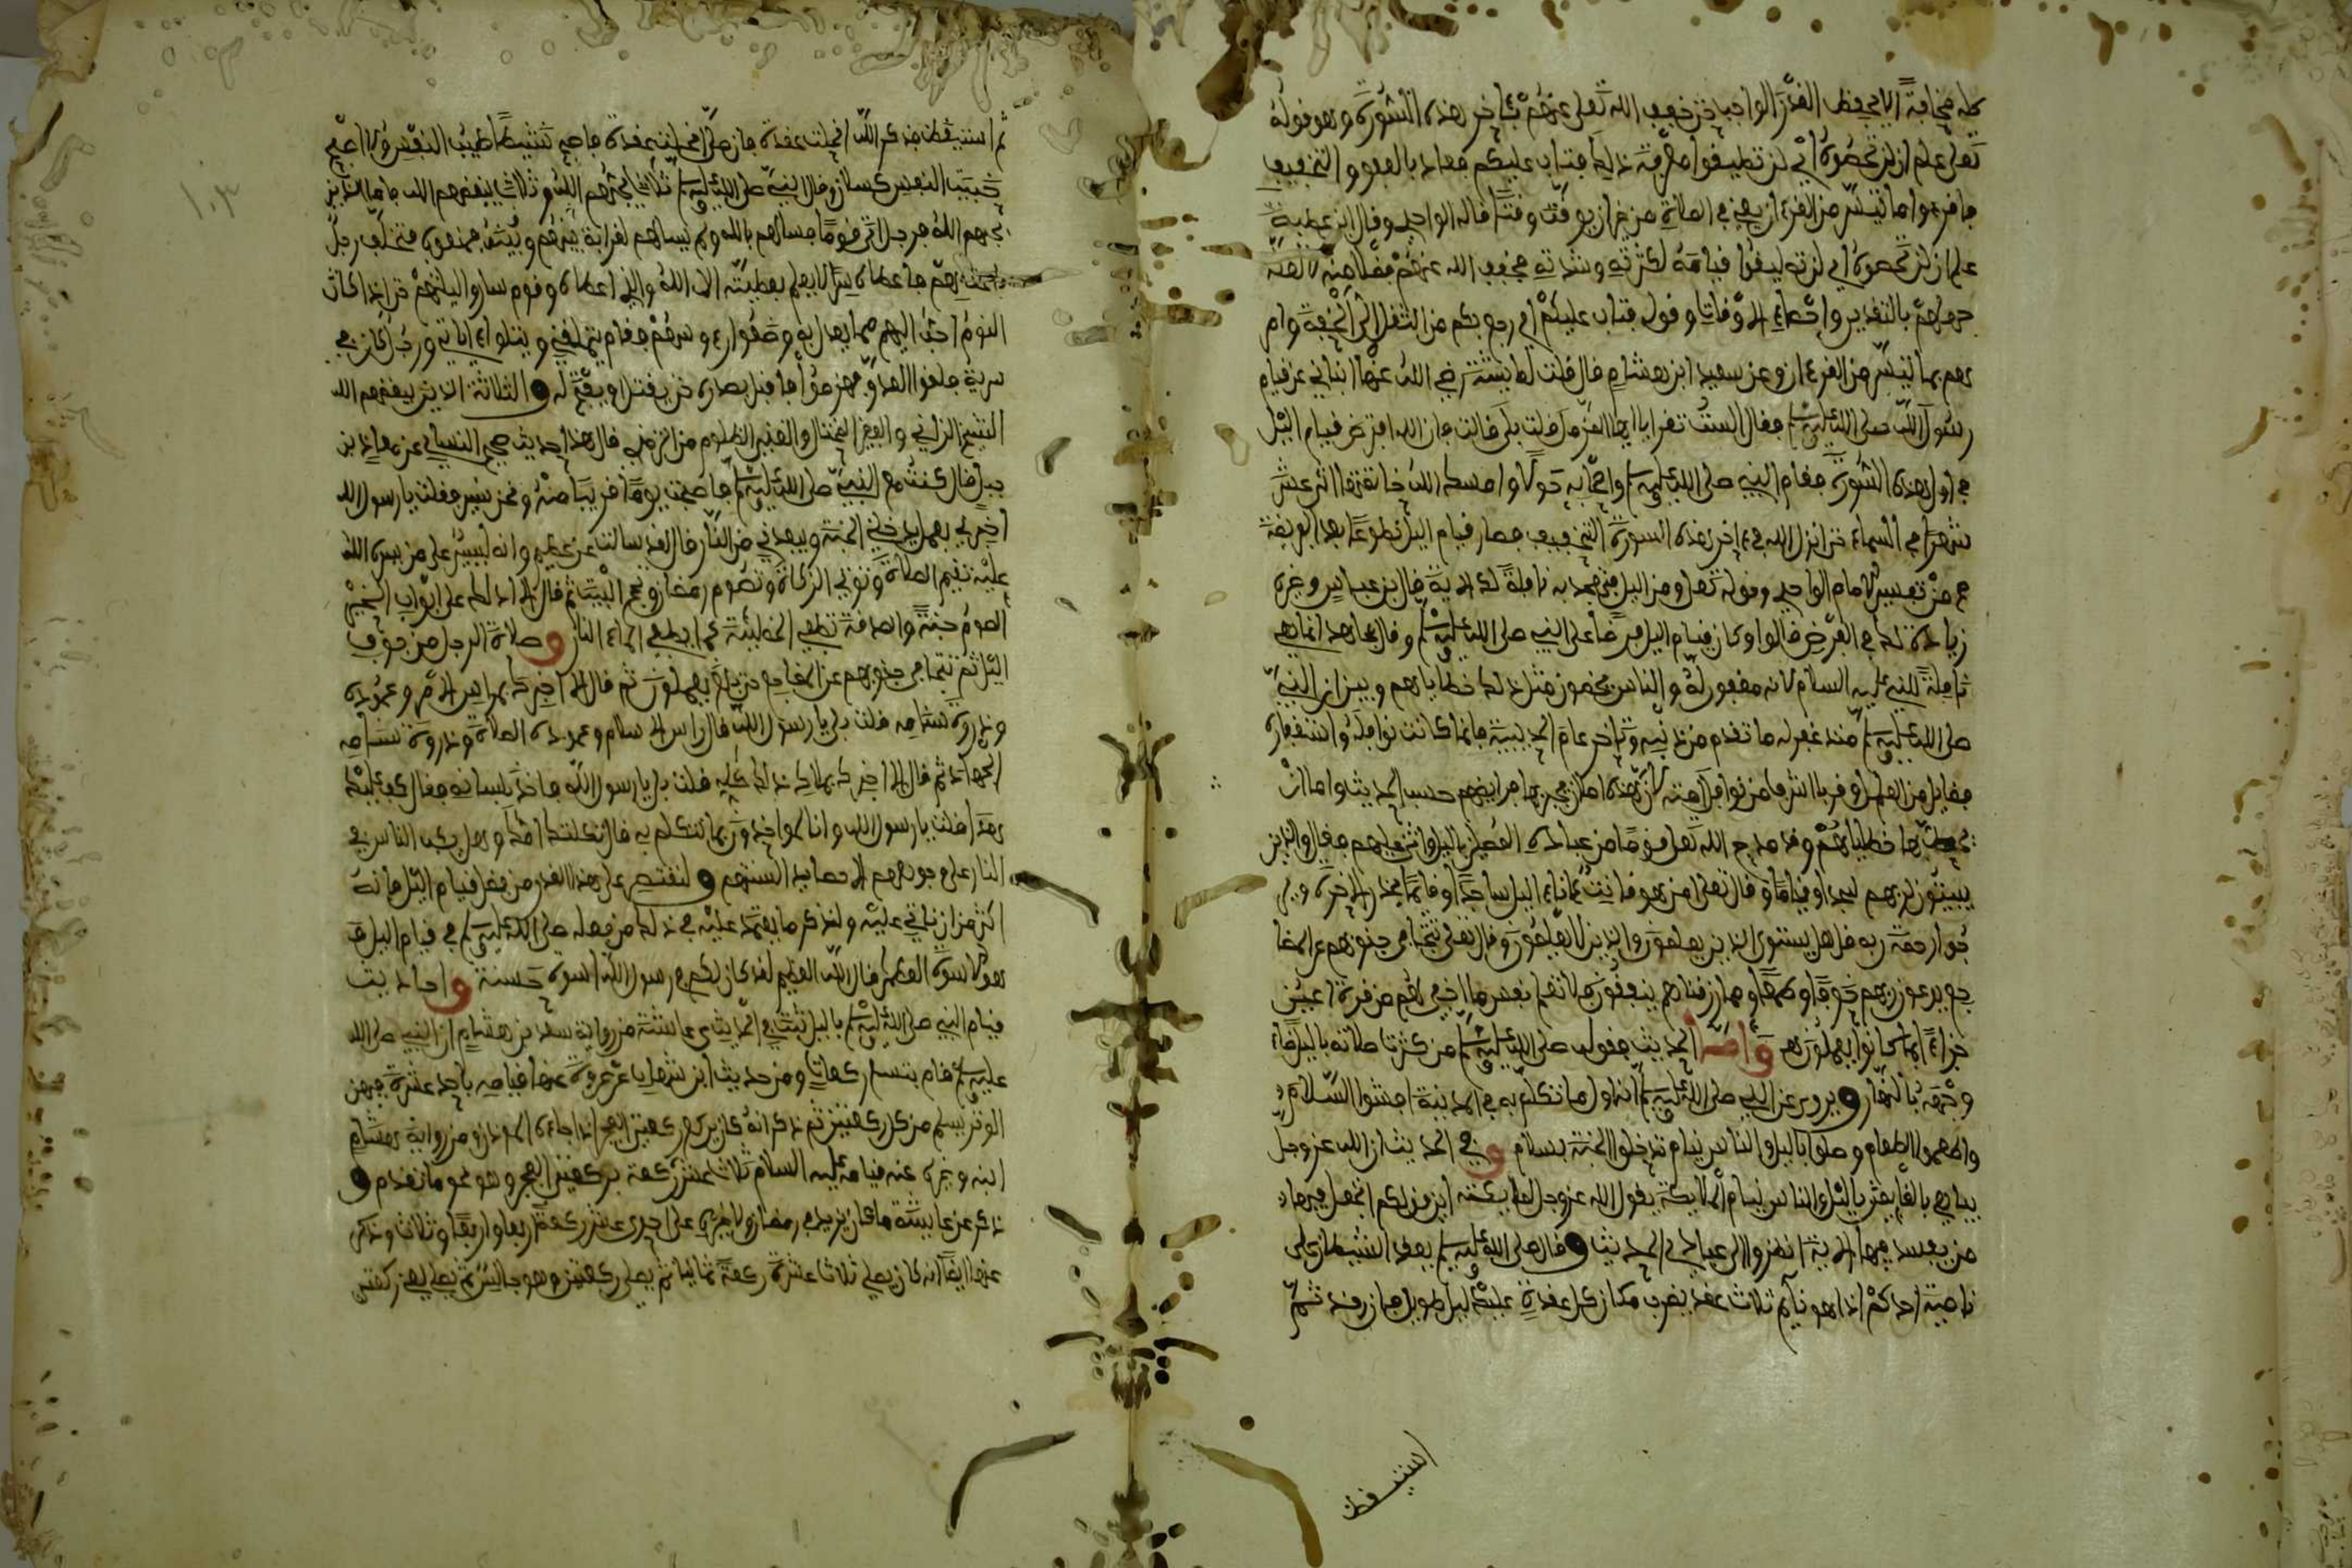 كله مخافة الا يحفظ القدر الواجب حتى خفف الله تعلى عنهم بآخر هذه السورة وهو قوله
تعلى علم ان لن تحصوه اي لن تطيقوا معرفة ذلك فتاب عليكم فعاد بالعفو والتخفيف
فاقرءوا ما تيسر من القرءان يعني في الصلاة من غير ان يوقت وقتا قاله الواحدي وقال ابن عطية
علم ان لن تحصوه اي لن تطيقوا قيامه لكثرته وشدته فخفف الله عنهم فضلا منه لا لعلة
جهلهم بالتقدير واحصاء الاوقات وقوله فتاب عليكم اي رجع بكم من الثقل الى الخفة وام
رهم بما تيسر من القرءان وعن سعيد ابن هشام قال قلت لعايشة رضي الله عنها انبئني عن قيام
رسول الله صلى الله عليه وسلم فقالت الست تقرا يا ايها المزمل قلت بلى قالت فان الله افترض قيام اليل
في اول هذه السورة فقام النبي صلى الله عليه وسلم واصحابه حولا وامسك الله خاتمتها اثنى عشر
شهرا في السماء حتى انزل الله في ءاخر هذه السورة التخفيف فصار قيام اليل تطوعا بعد الفريضة
هـ من تفسير الامام الواحدي وقوله تعلى ومن اليل فتهجد به نافلة لك الاية قال ابن عباس وغيره
زيادة لك في الفرض قالوا وكان قيام اليل فرضا على النبي صلى الله عليه وسلم وقال مجاهد انما هي
نافلة للنبي عليه السلام لانه مغفور له والناس يحطون مثل ذلك خطاياهم وبين ان النبي
صلى الله عليه وسلم منذ غفر له ما تقدم من ذنبه وما تاخر عام الحديبية فانما كانت نوافله واستغفاره
فضايل من العمل وقربا اشرف من نوافل امته لان هذه اما ان يجبر بها فرايضهم حسب الحديث واما ان
تحط بها خطاياهم وقد مدح الله تعلى قوما من عباده المصلين باليل واثنى عليهم فقال والذين
يبيتون لربهم سجدا وقياما وقال تعلى امن هو قانت ءاناء اليل ساجدا وقائما يحذر الاخرة ويـ
رجوا رحمة ربه قل هل يستوي الذين يعلمون والذين لا يعلمون وقال تعلى تتجافى جنوبهم عن المضا
جع يدعون ربهم خوفا وطمعا ومما رزقناهم ينفقون فلا تعلم نفس ما اخفي لهم من قرة اعين
جزاء بما كانوا يعملون هـ واما الحديث فقوله صلى الله عليه وسلم من كثرت صلاته باليل ضاء
وجهه بالنهار و يروى عن النبي صلى الله عليه وسلم انه اول ما تكلم به في المدينة افشوا السلام
واطعموا الطعام وصلوا باليل والناس نيام تدخلوا الجنة بسلام و في الحديث ان الله عز وجل
يباهي بالقايمين باليل والناس نيام الملائكة يقول الله عز وجل لملايكته اين قولكم اتجعل فيها
من يفسد فيها الاية انظروا الى عبادي الحديث و قال صلى الله عليه وسلم يعقد الشيطان على
ناصية احدكم اذا هو نايم ثلاث عقد يضرب مكان كل عقدة عليك ليل طويل فارقد ثم
استيقظ
ثم استيقظ فذكر الله انحلت عقدة فان صلى انحلت عقدة فاصبح نشيطا طيب النفس والا اصبح
خبيث النفس كسلان وقال النبي صلى الله عليه وسلم ثلاثة يحبهم الله وثلاثة يبغضهم الله فاما الذين
يحبهم الله فرجل اتى قوما فسالهم بالله ولم يسالهم لقرابة بينهم وبينه فمنعوه فتخلف رجل
باعقابهم فاعطاه سرا لا يعلم بعطيته الا الله والذي اعطاه وقوم ساروا ليلتهم حتى اذا كان
النوم احب اليهم مما يعدل به وضعوا رءوسهم فقام يتملقني ويتلوا ءاياتي ورجل كان في
سرية فلقوا العدو فهزموا فاقبل بصدره حتى يقتل او يفتح له و الثلاثة الذين يبغضهم الله
الشيخ الزاني والفقير المختال والغني الظلوم من الترمذي قال هذا حديث صحيح النسايي عن معاذ بن
جبل قال كنت مع النبي صلى الله عليه وسلم فاصبحت يوما قريبا منه ونحن نسير فقلت يا رسول الله
اخبرني بعمل يدخلني الجنة ويبعدني من النار قال لقد سالت عن عظيم وانه ليسير على من يسره الله
عليه تقيم الصلاة وتوتي الزكاة وتصوم رمضان وتحج البيت ثم قال الا ادلك على ابواب الخير
الصوم جنة والصدقة تطفي الخطيئة كما يطفي الماء النار و صلاة الرجل من جوف
اليل ثم تتجافى جنوبهم عن المضاجع حتى بلغ يعملون ثم قال الا اخبرك براس الامر وعموده
وذروة سنامه قلت بلى يا رسول الله قال راس الاسلام وعموده الصلاة وذروة سنامه
الجهاد ثم قال الا اخبرك بملاك ذلك كله قلت بلى يا رسول الله فاخذ بلسانه فقال كف عليك
هذا قلت يا رسول الله وانا لمواخذون بما نتكلم به قال ثكلتك امك وهل يكب الناس في
النار على وجوههم الا حصايد السنتهم و لنقتصر على هذا القدر من فضل قيام اليل فانه
اكثر من ان ناتي عليه ولنذكر ما يعتمد عليه في ذلك من فعله صلى الله عليه وسلم في قيام اليل فـ
هو الاسوة العظمى قال الله العظيم لقد كان لكم في رسول الله اسوة حسنة و احاديث
قيام النبي صلى الله عليه وسلم باليل ثبتت في الحديث عن عايشة من رواية سعد بن هشام ان النبي صلى الله
عليه وسلم قام بتسع ركعات ومن حديث ابن شهاب عن عروة عنها قيامه باحدى عشرة فيهن
الوتر يسلم من كل ركعتين ثم ذكر انه كان يركع ركعتي الفجر اذا جاءه الموذن ومن رواية هشام
ابنه وغيره عنه قيامه عليه السلام ثلاث عشر ركعة بركعتي الفجر وهو نحو ما تقدم و
ذكر عن عايشة ما كان يزيد في رمضان ولا غيره على احدى عشر ركعة اربعا واربعا وثلاثا وذكر
عنها ايضا انه كان يصلي ثلاث عشرة ركعة ثمانيا ثم يصلي ركعتين وهو جالس ثم يصلي